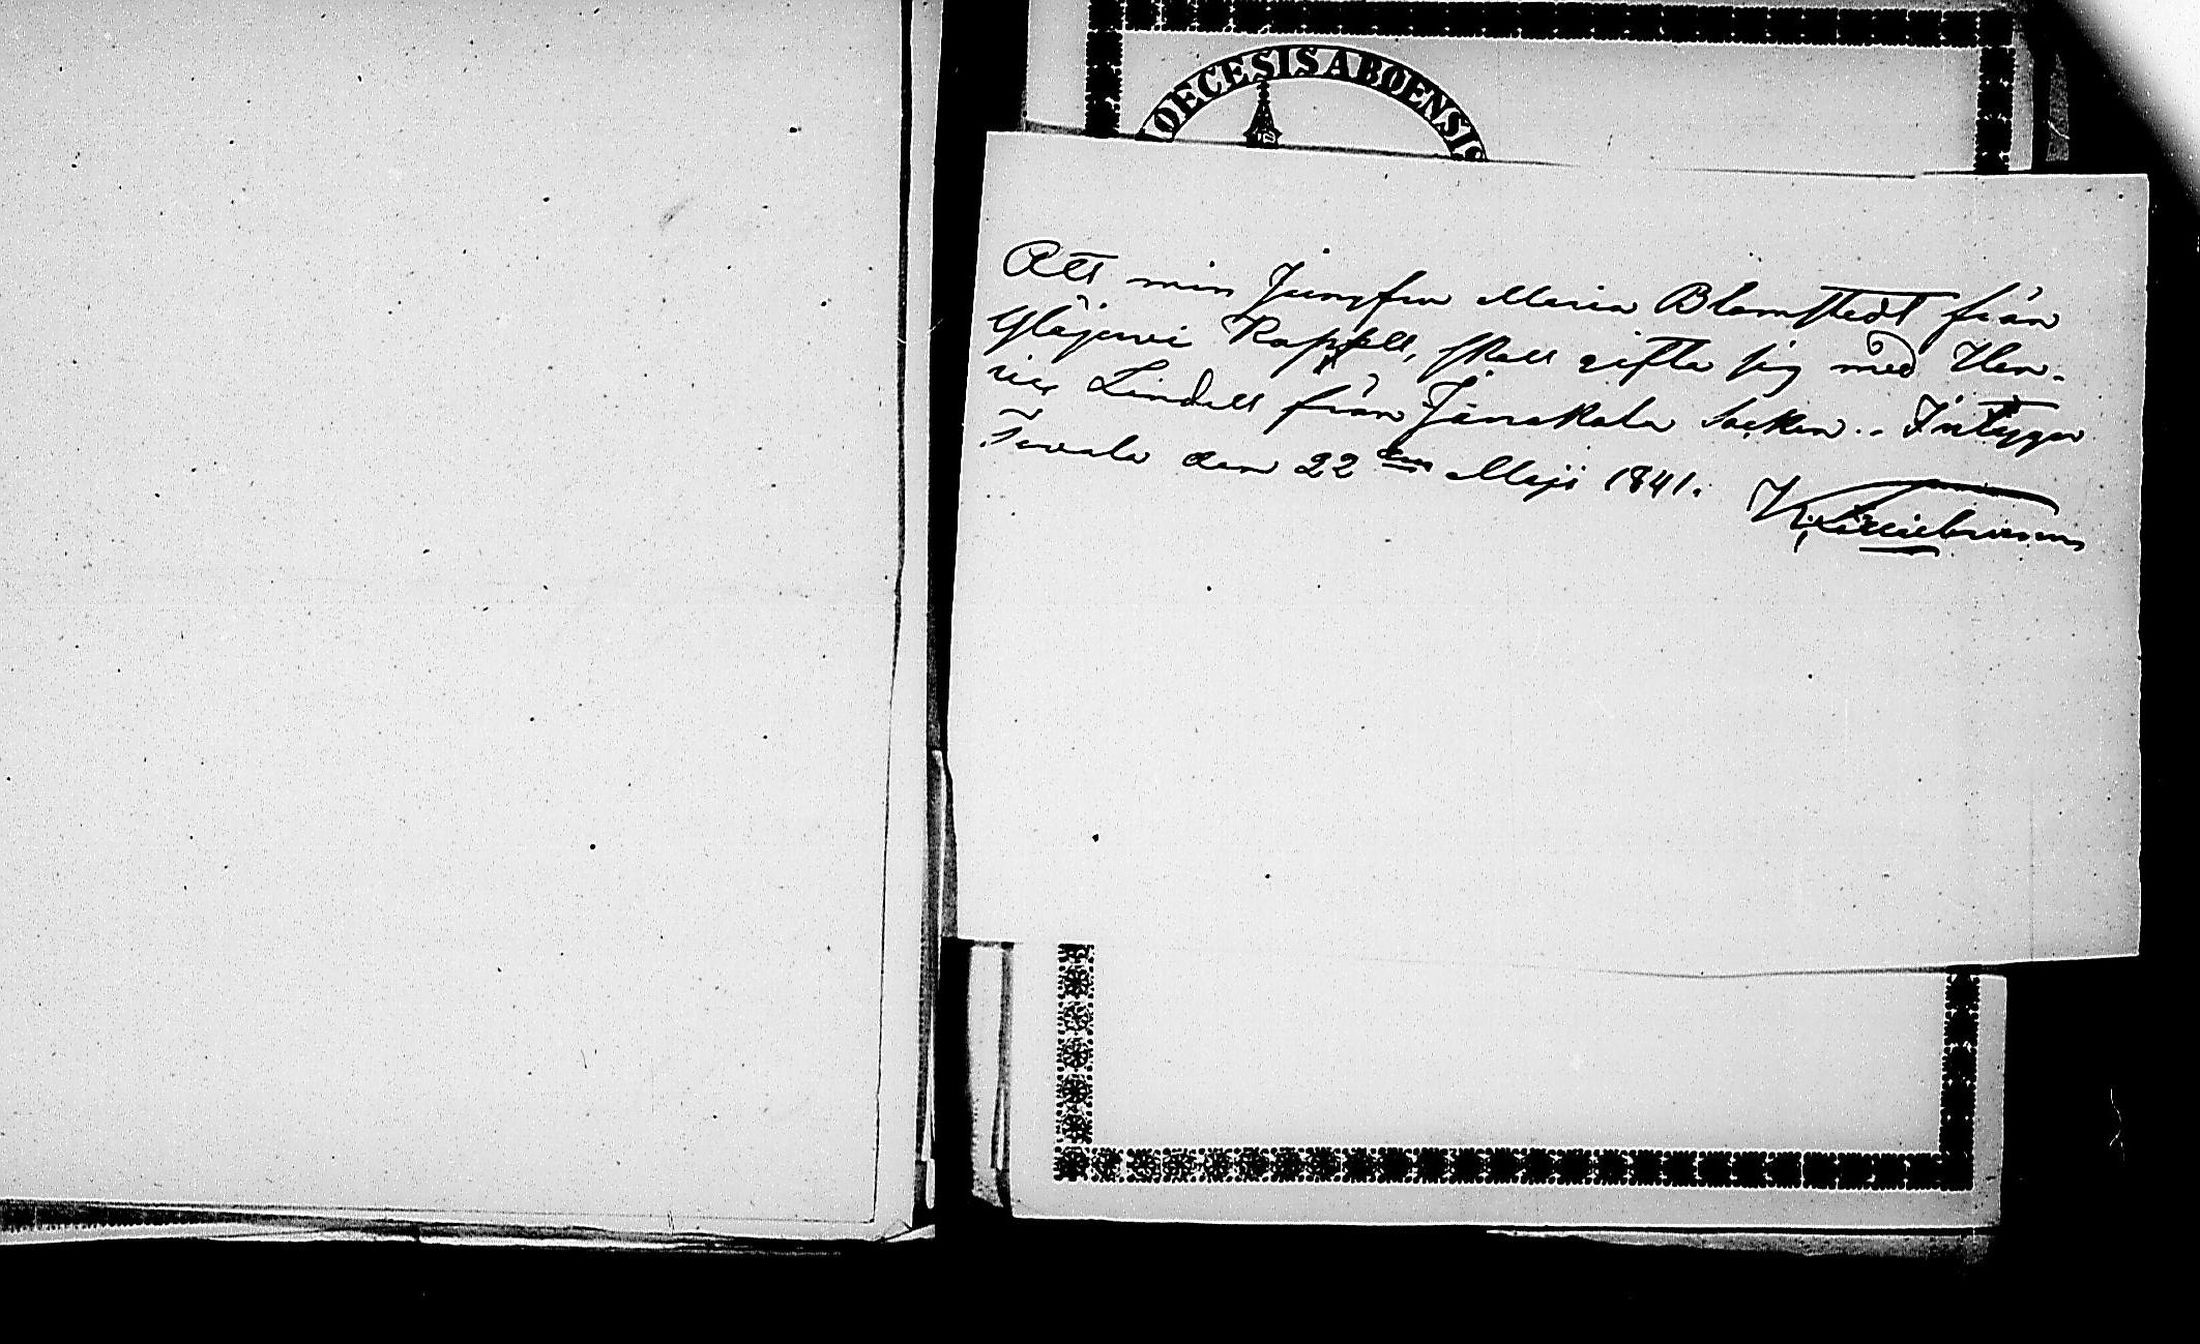 OECESIS ABOENSIS
Att min Jungfru Maria Blomstedt från
Yläjärvi Kapell, skall gifta sig med Hen-
ric Lindell från Janakala Socken.. Intygar
Tervala den 22 den Maji 1841.